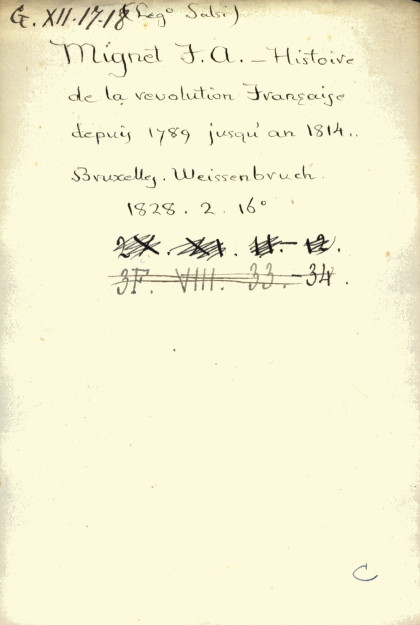 G. XII. 17-18 (Leg° Salsi)
Mignet F. A. - Histoire
de la revolution Française
depuis 1789 jusqu'an 1814..
Bruxelles. Weissenbruch.
1828. 2. 16°
3F. VIII. 33. - 34.
C